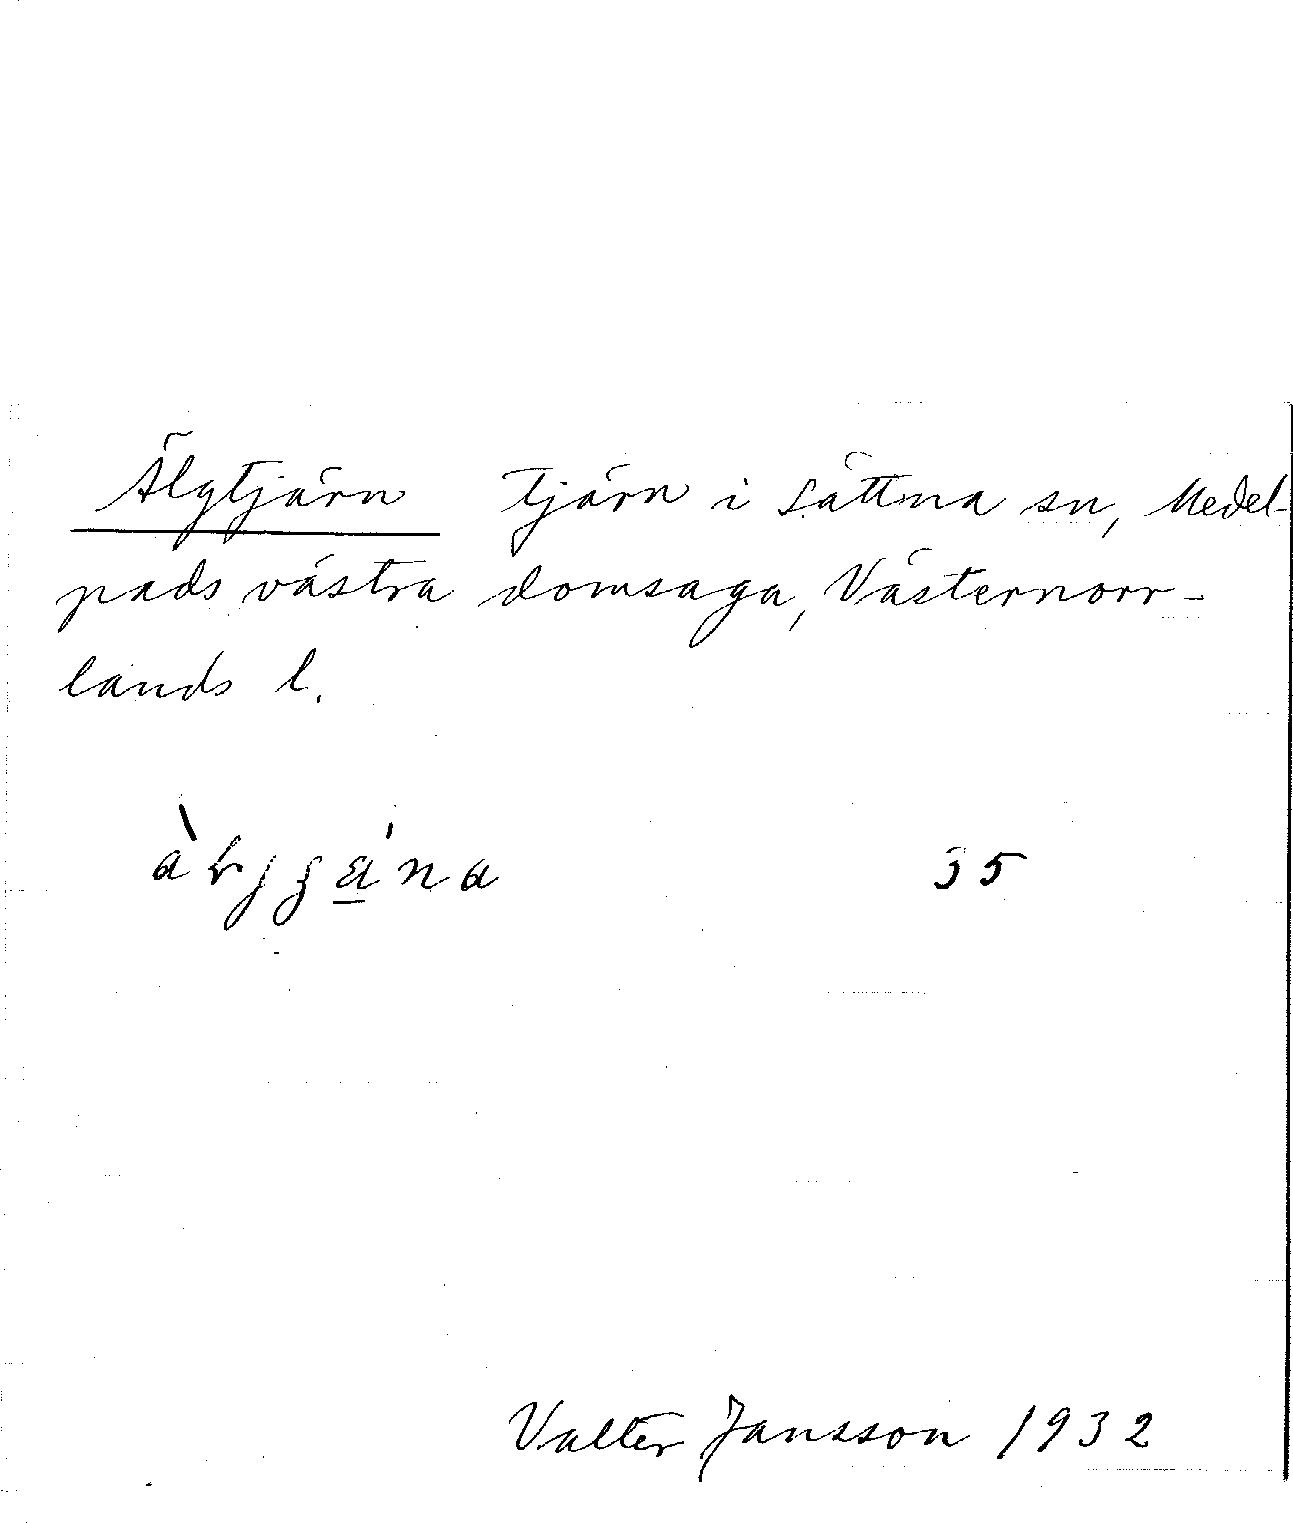 Älgtjärn Tjärn i Sättna sn, Medel-
pads västra domsaga, Västernorr-
lands l.
35
Valter Jansson 1932